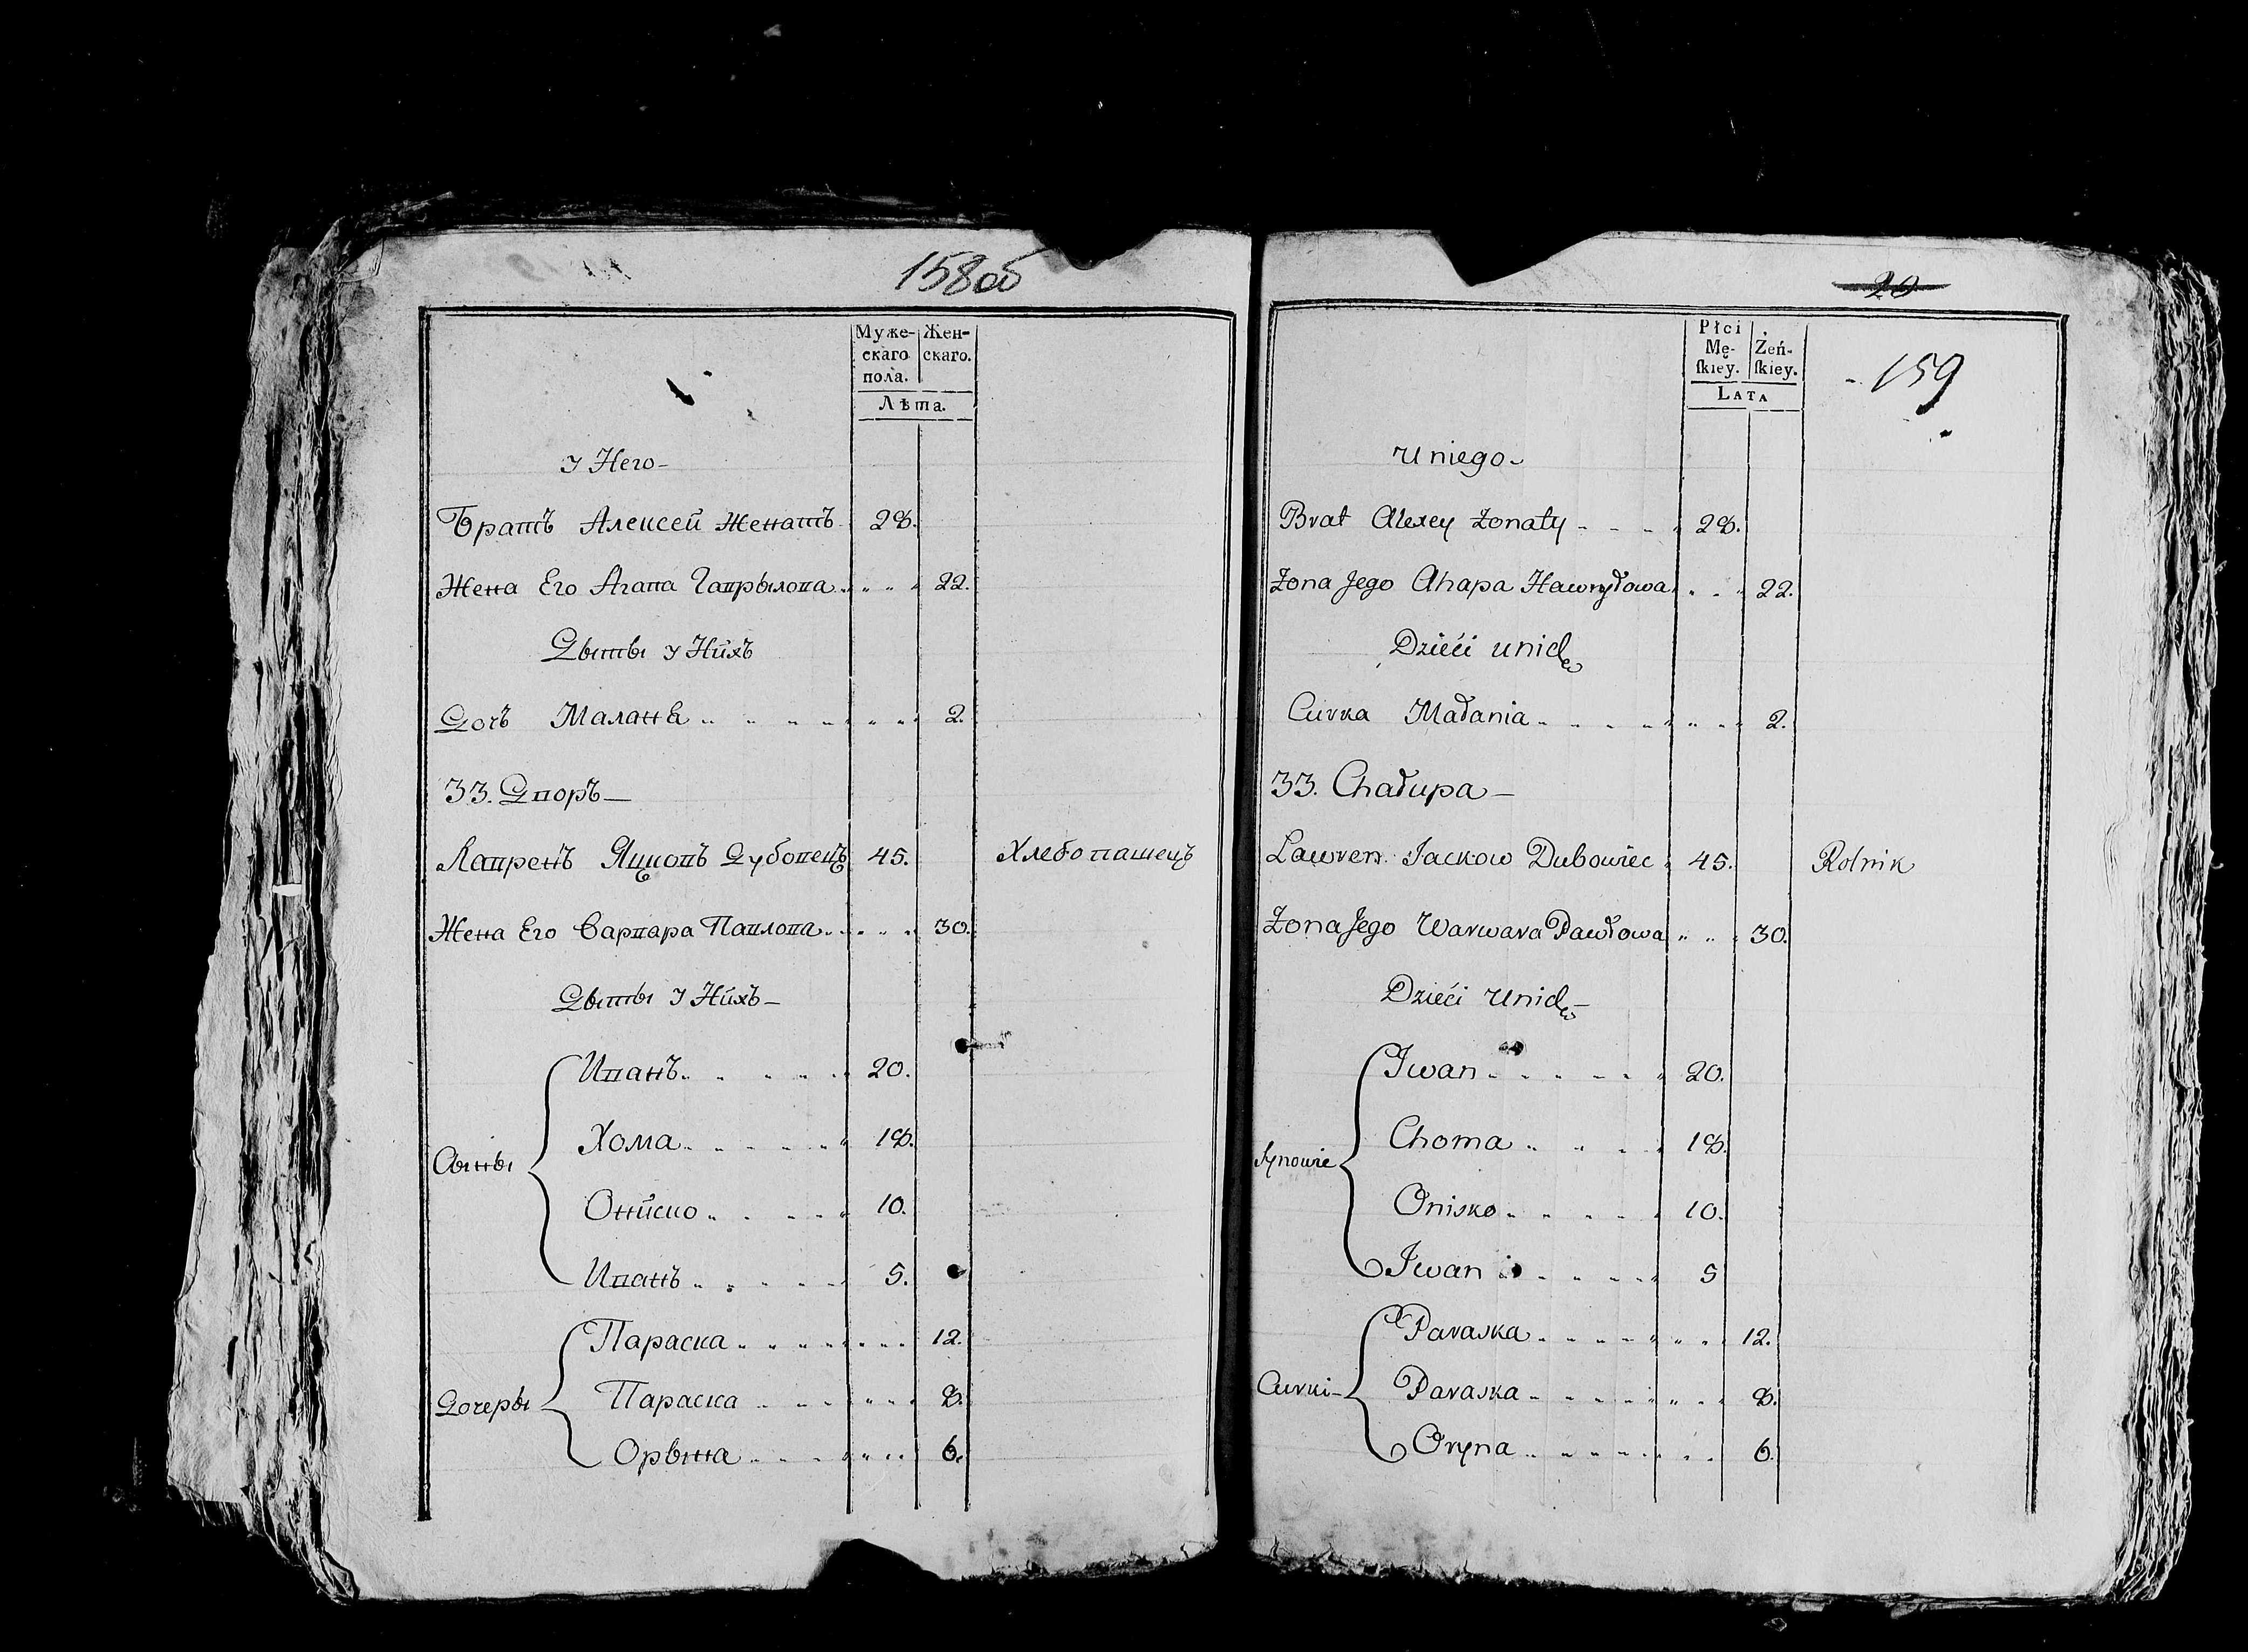 158об
Муже-
скаго
пола.
Жен-
скаго.
Лѣта.
У Него
Братъ Алексей Женатъ 28.
Жена Его Агапа Гаврылова 22.
Дыты у Нихъ
Дочъ Маланя 2.
33. Дворъ
Лавренъ Яцковъ Дубовецъ 45. Хлебопашецъ
Жена Его Варвара Павлова 30.
Дыты у Нихъ
Сыны
Иванъ 20.
Хома 18.
Ониско 10.
Иванъ 5.
Дочеры
Параска 12.
Параска 8.
Орына 6.
20
159
Płci
Mę-
ſkiey.
Żeń-
ſkiey.
LATA
U niego
Brat Alexey żonaty 28.
Żona Jego Ahapa Hawryłowa 22.
Dzieći unich
Curka Małania 2.
33. Chałupa
Lawren Jackow Dubowiec 45. Rolnik
Żona Jego Warwara Pawłowa 30.
Dzieći unich
Synowie
Iwan 20.
Choma 18.
Onisko 10.
Iwan 5
Curki
Paraska 12.
Paraska 8.
Oryna 6.